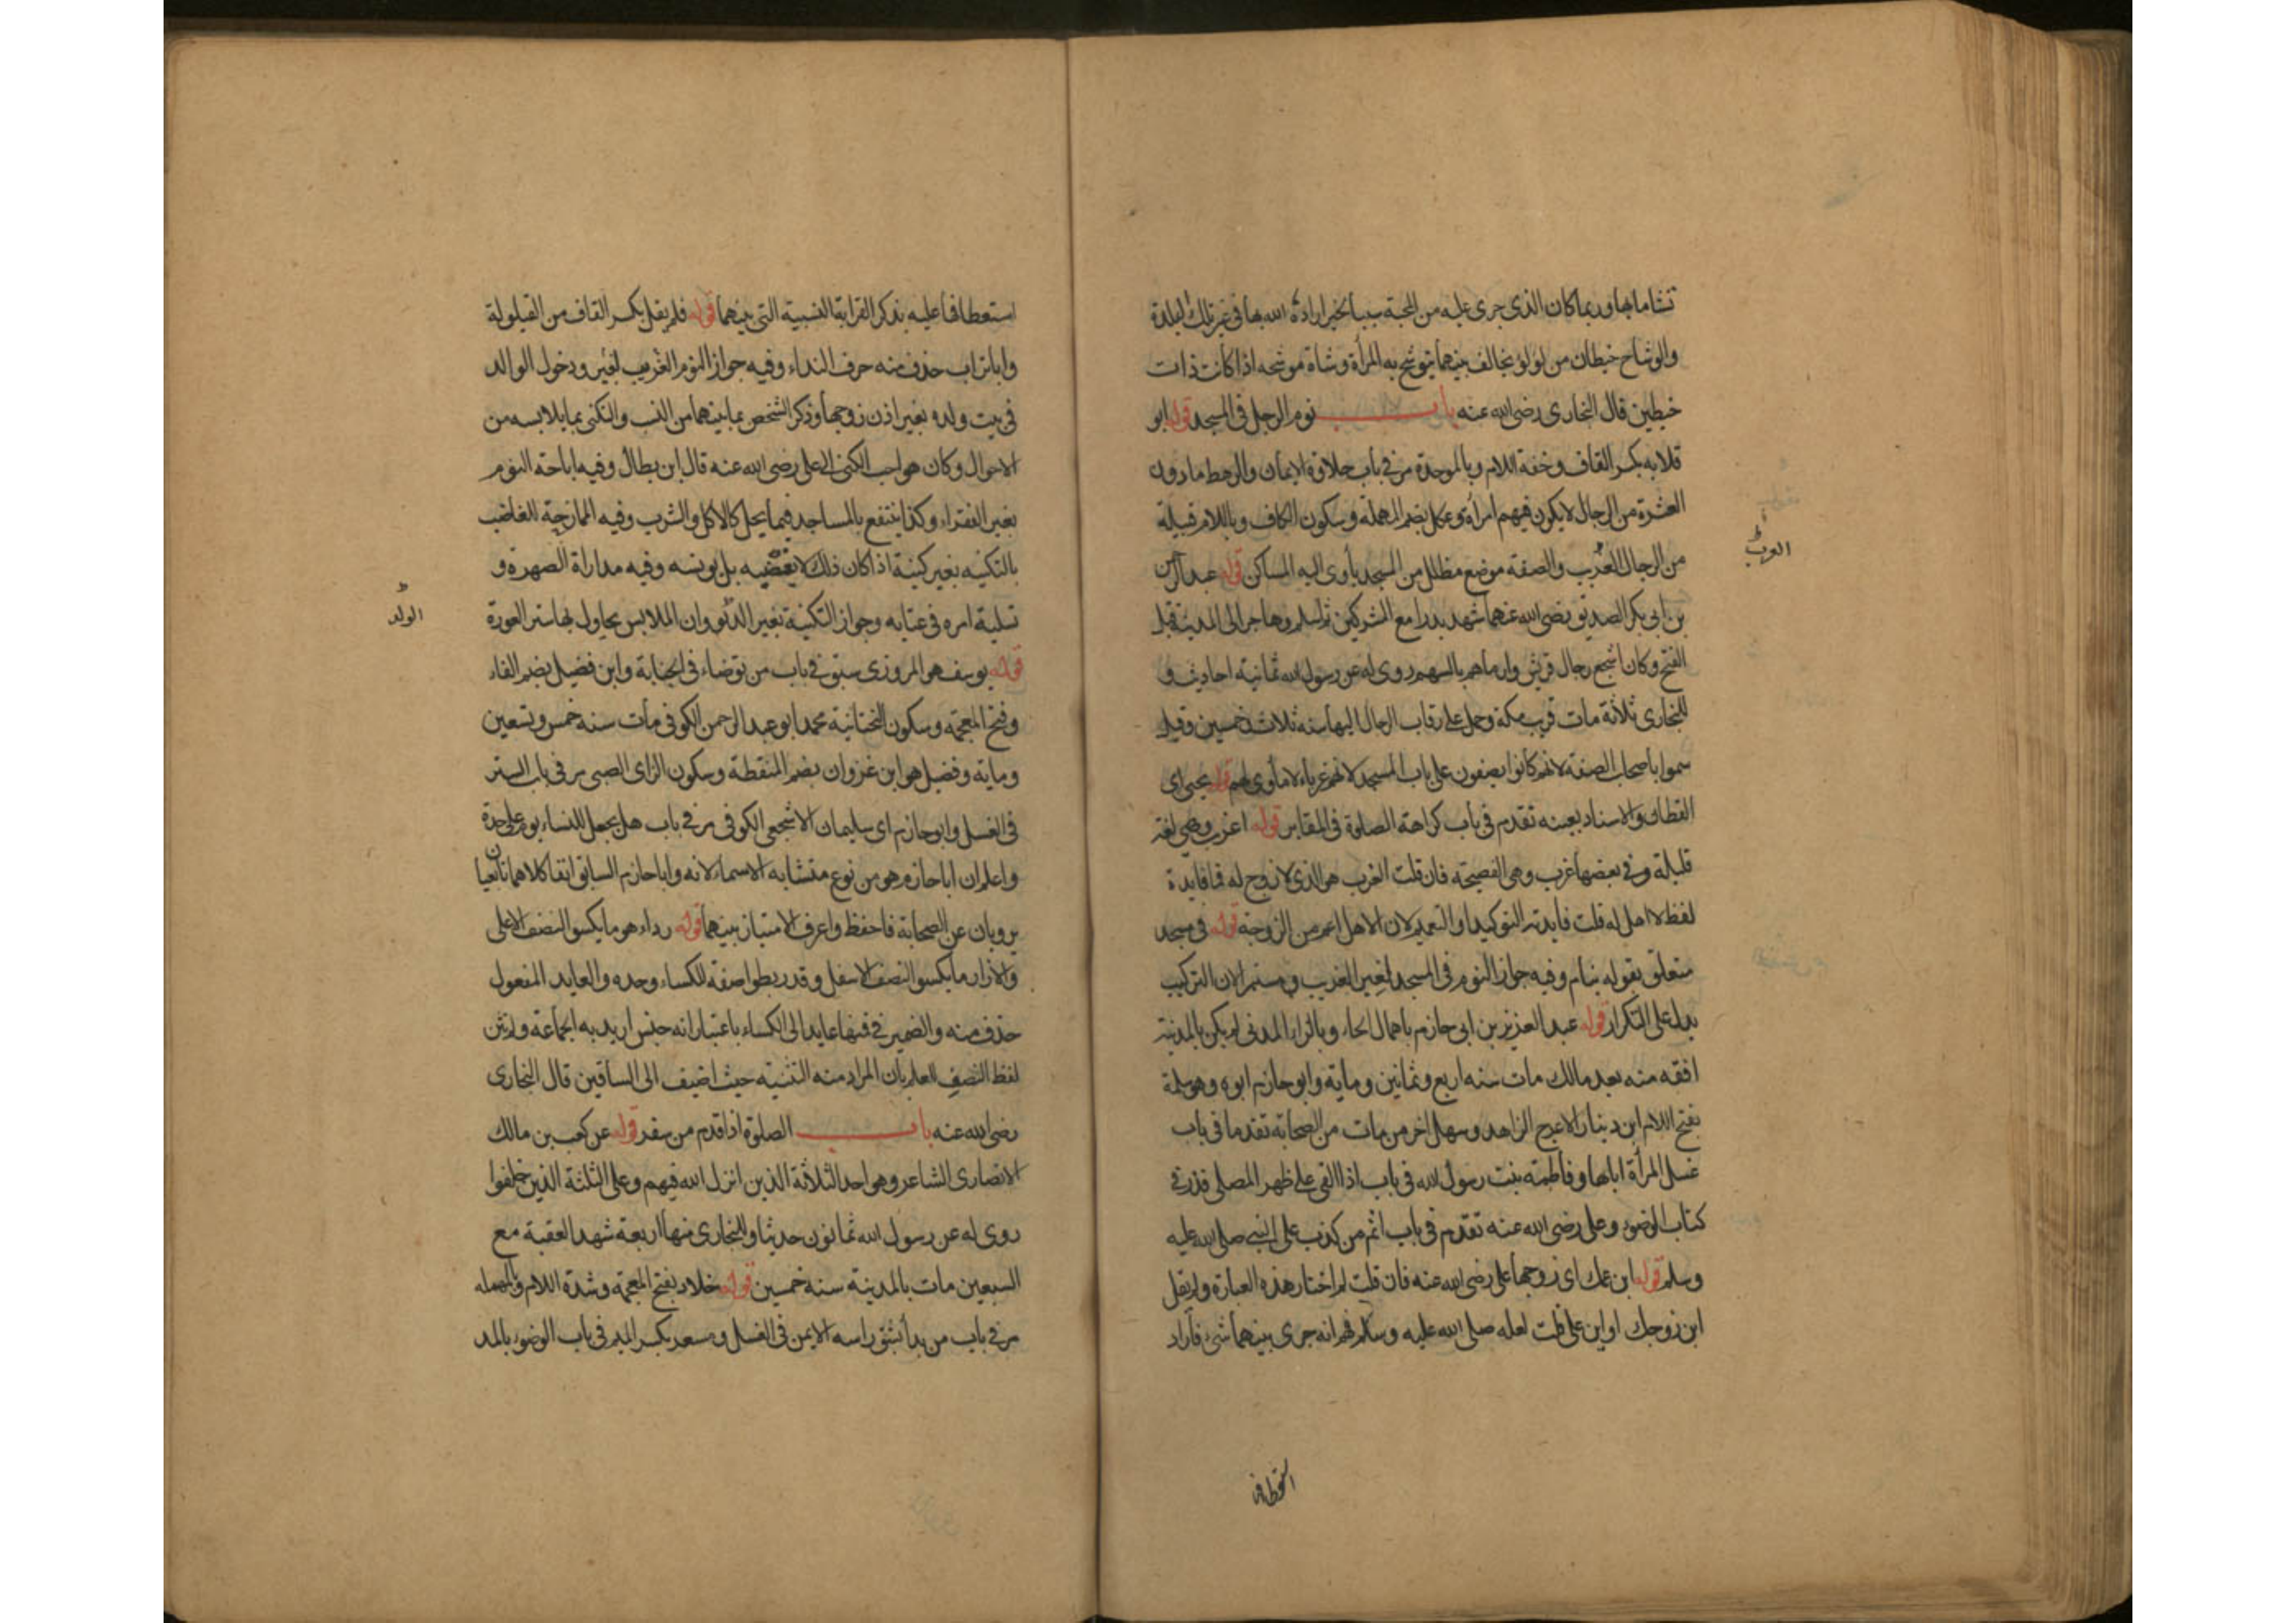 تشاما بها وربما كان الذى جرى عليه من المحبة سببا لخير اراده الله بها فى غير تلك البلدة
والوشاح خيطان من لؤلؤ يخالف بينهما يتوشح به المرأة وشاة موشحه اذا كانت ذات
خيطين قال البخارى رضى الله عنه باب نوم الرجل فى المسجد قوله ابو
قلابه بكسر القاف وخفة اللام وبالموحدة مر فى باب حلاوة الايمان والرهط ما دون
العشرة من الرجال لا يكون فيهم امرأة وعكل بضم المهملة وسكون الكاف وباللام قبيلة
من الرجال العرب والصفة موضع مظلل من المسجد يأوى اليه المساكن قوله عبد الرحمن
العرب
بن ابى بكر الصديق رضى الله عنهما شهد بدرا مع المشركين ثم اسلم وهاجر الى المدينة قبل
الفتح وكان اشجع رجال قريش وارماهم بالسهم روى له عن رسول الله ثمانية احاديث و
للبخارى ثلاثة مات قرب مكة وحمل على رقاب الرجال اليها سنه ثلاث وخمسين وقيل
سموا باصحاب الصفة لانهم كانوا يصفون على باب المسجد لانهم غرباء لا مأوى لهم قوله يحيى اى
القطان والاسناد بعينه تقدم فى باب كراهة الصلوة فى المقابر قوله اعزب وهى لغة
قليلة وفى بعضها عزب وهى الفصيحة فان قلت العزب هو الذى لا زوج له فما فايدة
لفظ لا اهل له قلت فايدته التوكيد او التعميم لان الاهل اعم من الزوجة قوله فى مسجد
متعلق بقوله ينام وفيه جواز النوم فى المسجد لغير الغريب و مستمر الان التركيب
يدل على التكرار قوله عبد العزيز بن ابى حازم باهمال الحاء وبالزاء المدنى لم يكن بالمدينة
افقه منه بعد مالك مات سنه اربع وثمانين وماية وابو حازم ابوه وهو سلمة
بفتح اللام ابن دينار الاعرج الزاهد وسهل اخر من مات من الصحابة تقدما فى باب
غسل المرأة اباها وفاطمة بنت رسول الله فى باب اذا القى على ظهر المصلى قذر فى
كتاب الوضوء وعلى رضى الله عنه تقدم فى باب اثم من كذب على النبى صلى الله عليه
وسلم قوله ابن عمك اى زوجها على رضى الله عنه فان قلت لم اختار هذه العبارة ولم يقل
ابن زوجك او ابن على قلت لعله صلى الله عليه وسلم فهم انه جرى بينهما شىء فأراد
استعطافه
استعطافا عليه بذكر القرابة النسبية التى بينهما قوله فلم يقل بكسر القاف من القيلولة
وابا تراب حذف منه حرف النداء وفيه جواز النوم الغريب لغير ودخول الوالد
فى بيت ولده بغير اذن زوجها وذكر الشخص بما بينهما من النسب والتكنى بما يلابسه من
الاحوال وكان هو احب الكنى الى على رضى الله عنه قال ابن بطال وفيه اباحة النوم
بغير الفقراء وكذا ينتفع بالمساجد فيما يحل كالاكل والشرب وفيه الممازحة للغاضب
بالتكنيه بغير كنية اذا كان ذلك لا يغضبه بل يونسه وفيه مداراة الصهر و
تسلية امره فى عتابه وجواز التكنية بغير الولد وان الملابس يحاول بها ستر العورة
الولد
قوله يوسف هو المروزى سبق فى باب من توضاء فى الجنابة وابن فضيل بضم الفاء
وفتح المعجمة وسكون التحتانية محمد ابو عبد الرحمن الكوفى مات سنه خمس وتسعين
وماية وفضيل هو ابن غزوان بضم المنقطة وسكون الزاى الصبى مر فى باب الستر
فى الغسل وابو حازم اى سليمان الاشجعى الكوفى مر فى باب هل يجعل للنساء يوم على حدة
واعلم ان ابا حازم هو من نوع متشابه الاسماء لانه وابا حازم السابق انفا كلاهما تابعيان
يرويان عن الصحابة فاحفظ واعرف الامتياز بينهما قوله رداء هو ما يكسو النصف الاعلى
والازار ما يكسو النصف الاسفل وقد ربطوا صفة للكساء وحده والعايد المفعول
حذف منه والضمير فى فمنها عايد الى الكساء باعتبار انه جنس اريد به الجماعة ولم يثن
لفظ النصف للعلم بان المراد منه التثنية حيث اضيف الى الساقين قال البخارى
رضى الله عنه باب الصلوة اذا قدم من سفر قوله عن كعب بن مالك
الانصارى الشاعر وهو احد الثلاثة الذين انزل الله فيهم وعلى الثلثة الذين خلفوا
روى له عن رسول الله ثمانون حديثا وللبخارى منها اربعة شهد العقبة مع
السبعين مات بالمدينة سنه خمسين قوله خلاد بفتح المعجمة وشدة اللام وبالمهمله
مر فى باب من بدأ بشق راسه الايمن فى الغسل ومسعر بكسر الميم فى باب الوضوء بالمد